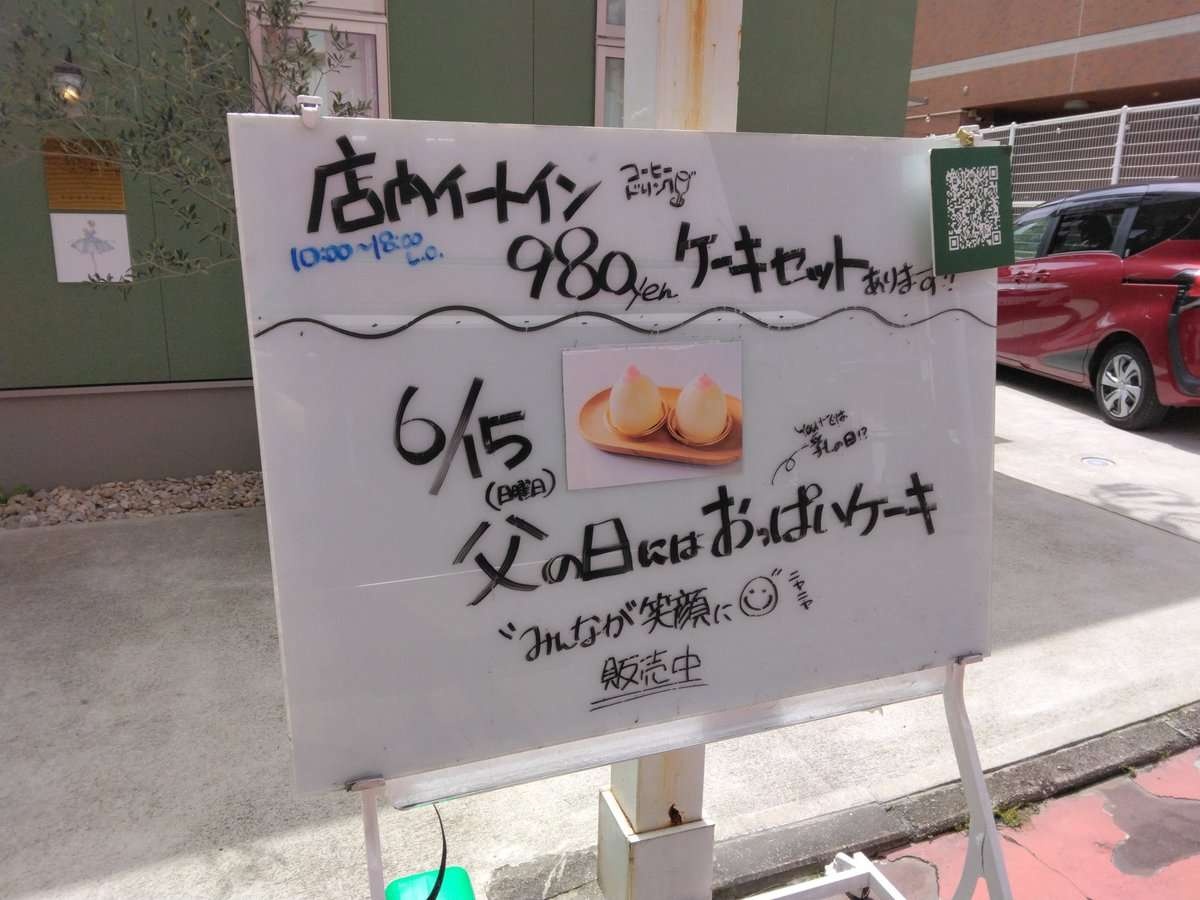 店内イートイン
コーヒー
ドリンク
10:00〜18:00
L.O.
980yen ケーキセットあります!!
6/15
(日曜日)
父の日にはおっぱいケーキ
"みんなが笑顔に"
ニヤニヤ
販売中